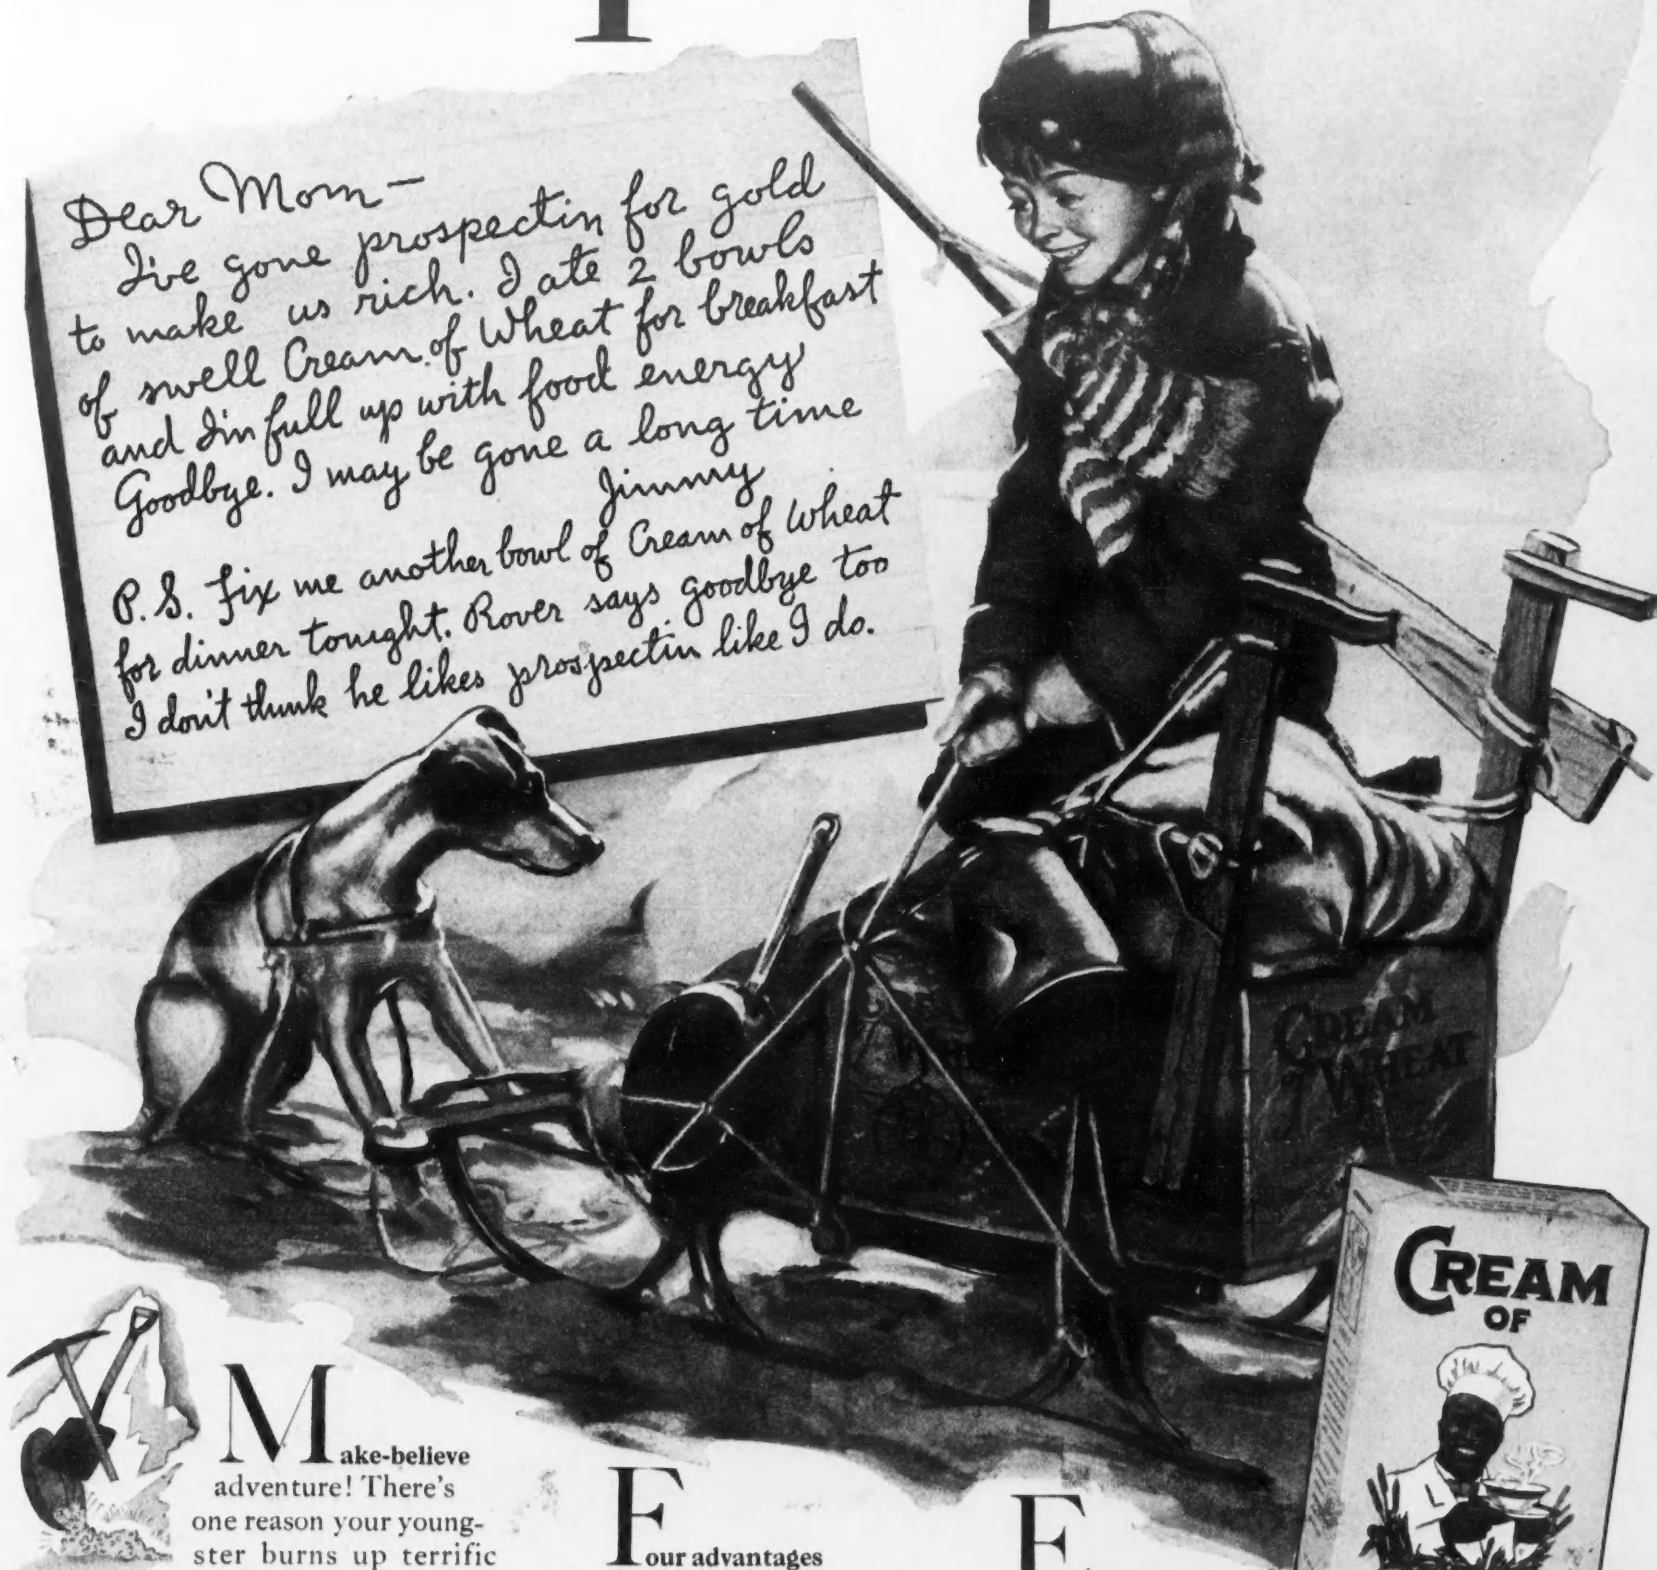 Dear Mom –
I've gone prospectin for gold
to make us rich. I ate 2 bowls
of swell Cream of Wheat for breakfast
and I'm full up with food energy
Goodbye. I may be gone a long time
Jimmy
P.S. Fix me another bowl of Cream of Wheat
for dinner tonight. Rover says goodbye too
I don't think he likes prospectin like I do.
CREAM
of WHEAT
CREAM
OF
Make-believe
adventure! There's
one reason your young-
ster burns up terrific
Four advantages
E